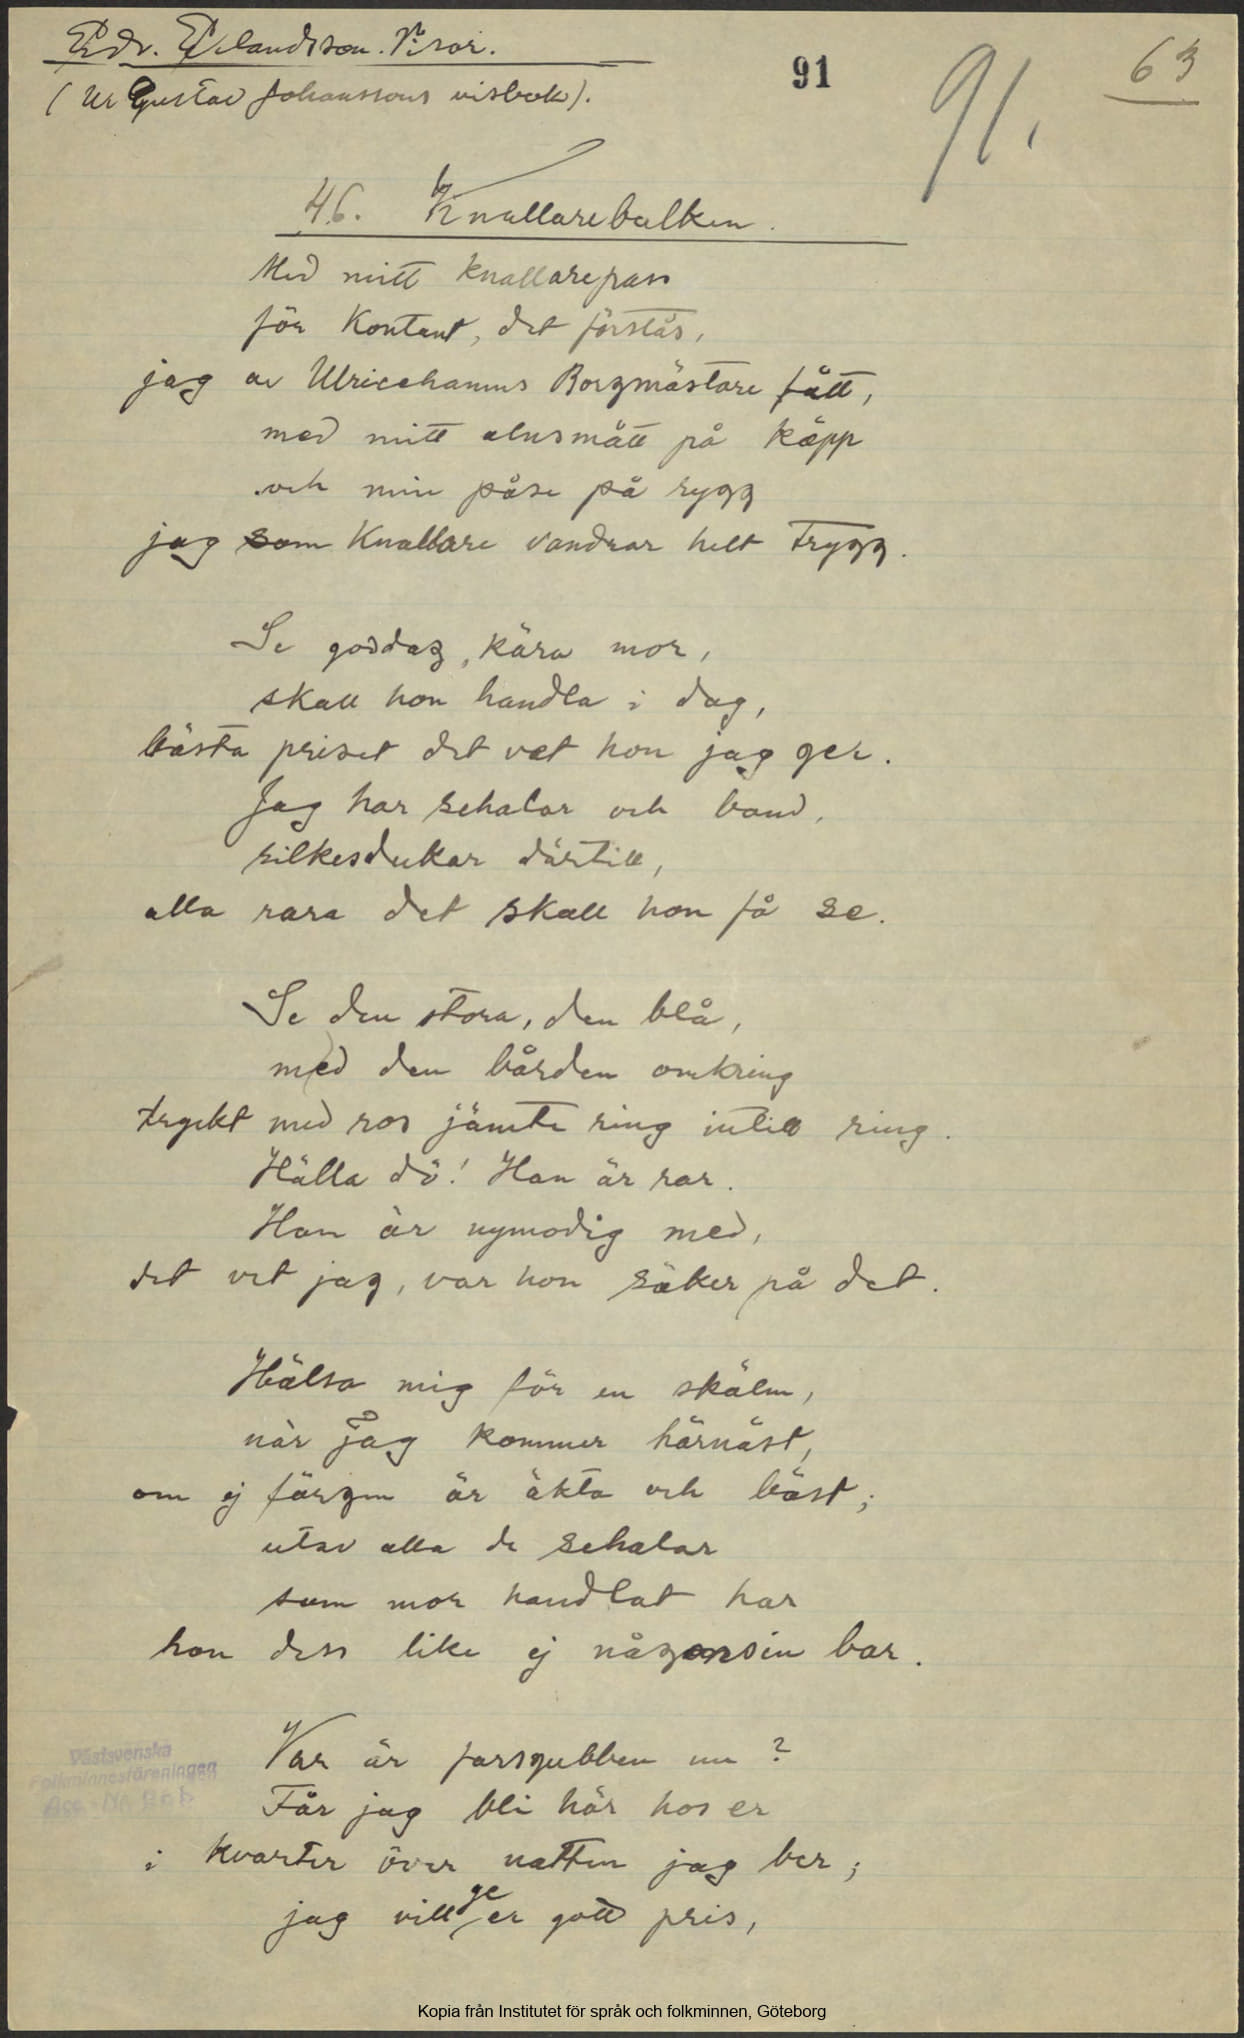 Edv. Erlandsson. Visor.
91
91.
63
(Ur Gustav Johanssons visbok).
46. Knallarebalken.
Med mitt knallarepass
för Kontant, det förstås,
jag av Ulricehamns Borgmästare fått,
med mitt alnsmått på käpp
och min påse på rygg
jag som Knallare vandrar helt trygg.
Se goddag, kära mor,
skall hon handla i dag,
bästa priset det vet hon jag ger.
Jag har schalar och band,
silkesdukar därtill,
alla rara det skall hon få se.
Se den stora, den blå,
med den bården omkring
tryckt med ros jämte ring intill ring.
Hålla dö! Han är rar.
Han är nymodig med,
det vet jag, var hon säker på det.
Hälsa mig för en skälm,
när jag kommer härnäst,
om ej färgen är äkta och bäst;
utav alla de schalar
som mor handlat har
hon dess like ej någonsin bar.
Var är farsgubben nu?
Får jag bli här hos er
i kvarter över natten jag ber;
jag vill ge er gott pris,
Västsvenska
Folkminnesföreningen
Acc. Nr
Kopia från Institutet för språk och folkminnen, Göteborg